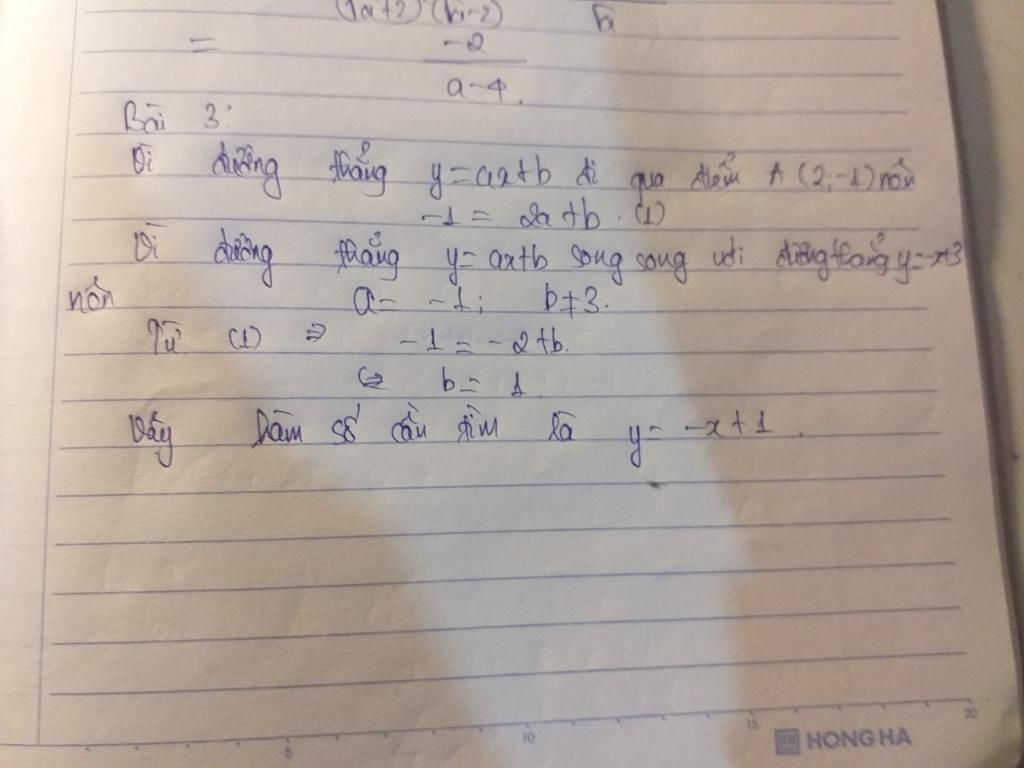 (√a+2)(√a-2) √a
= -2
a-4.
Bài 3:
Vì đường thẳng y=ax+b đi qua điểm A (2;-1) nên
-1 = 2a+b. (1)
Vì đường thẳng y=ax+b song song với đường thẳng y=-x+3
nên a= -1; b≠3.
Từ (1) ⇒ -1=-2+b.
⇔ b= 1
Vậy hàm số cần tìm là y= -x+1.
5 10 15 20
HONG HA